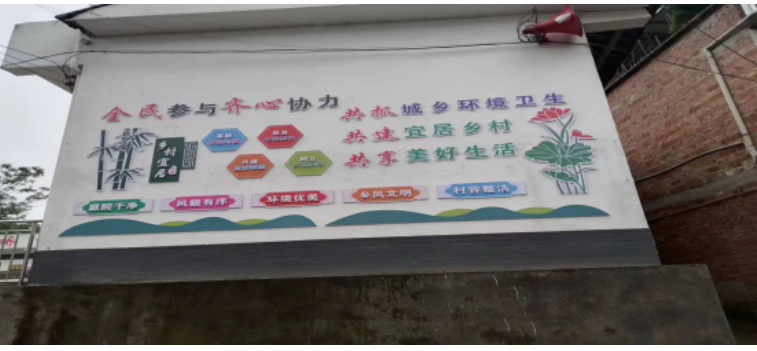 全民参与齐心协力
共抓城乡环境卫生
共建宜居乡村
共享美好生活
乡村宜居
共建
庭院干净
风貌有序
环境优美
乡风文明
村容整洁